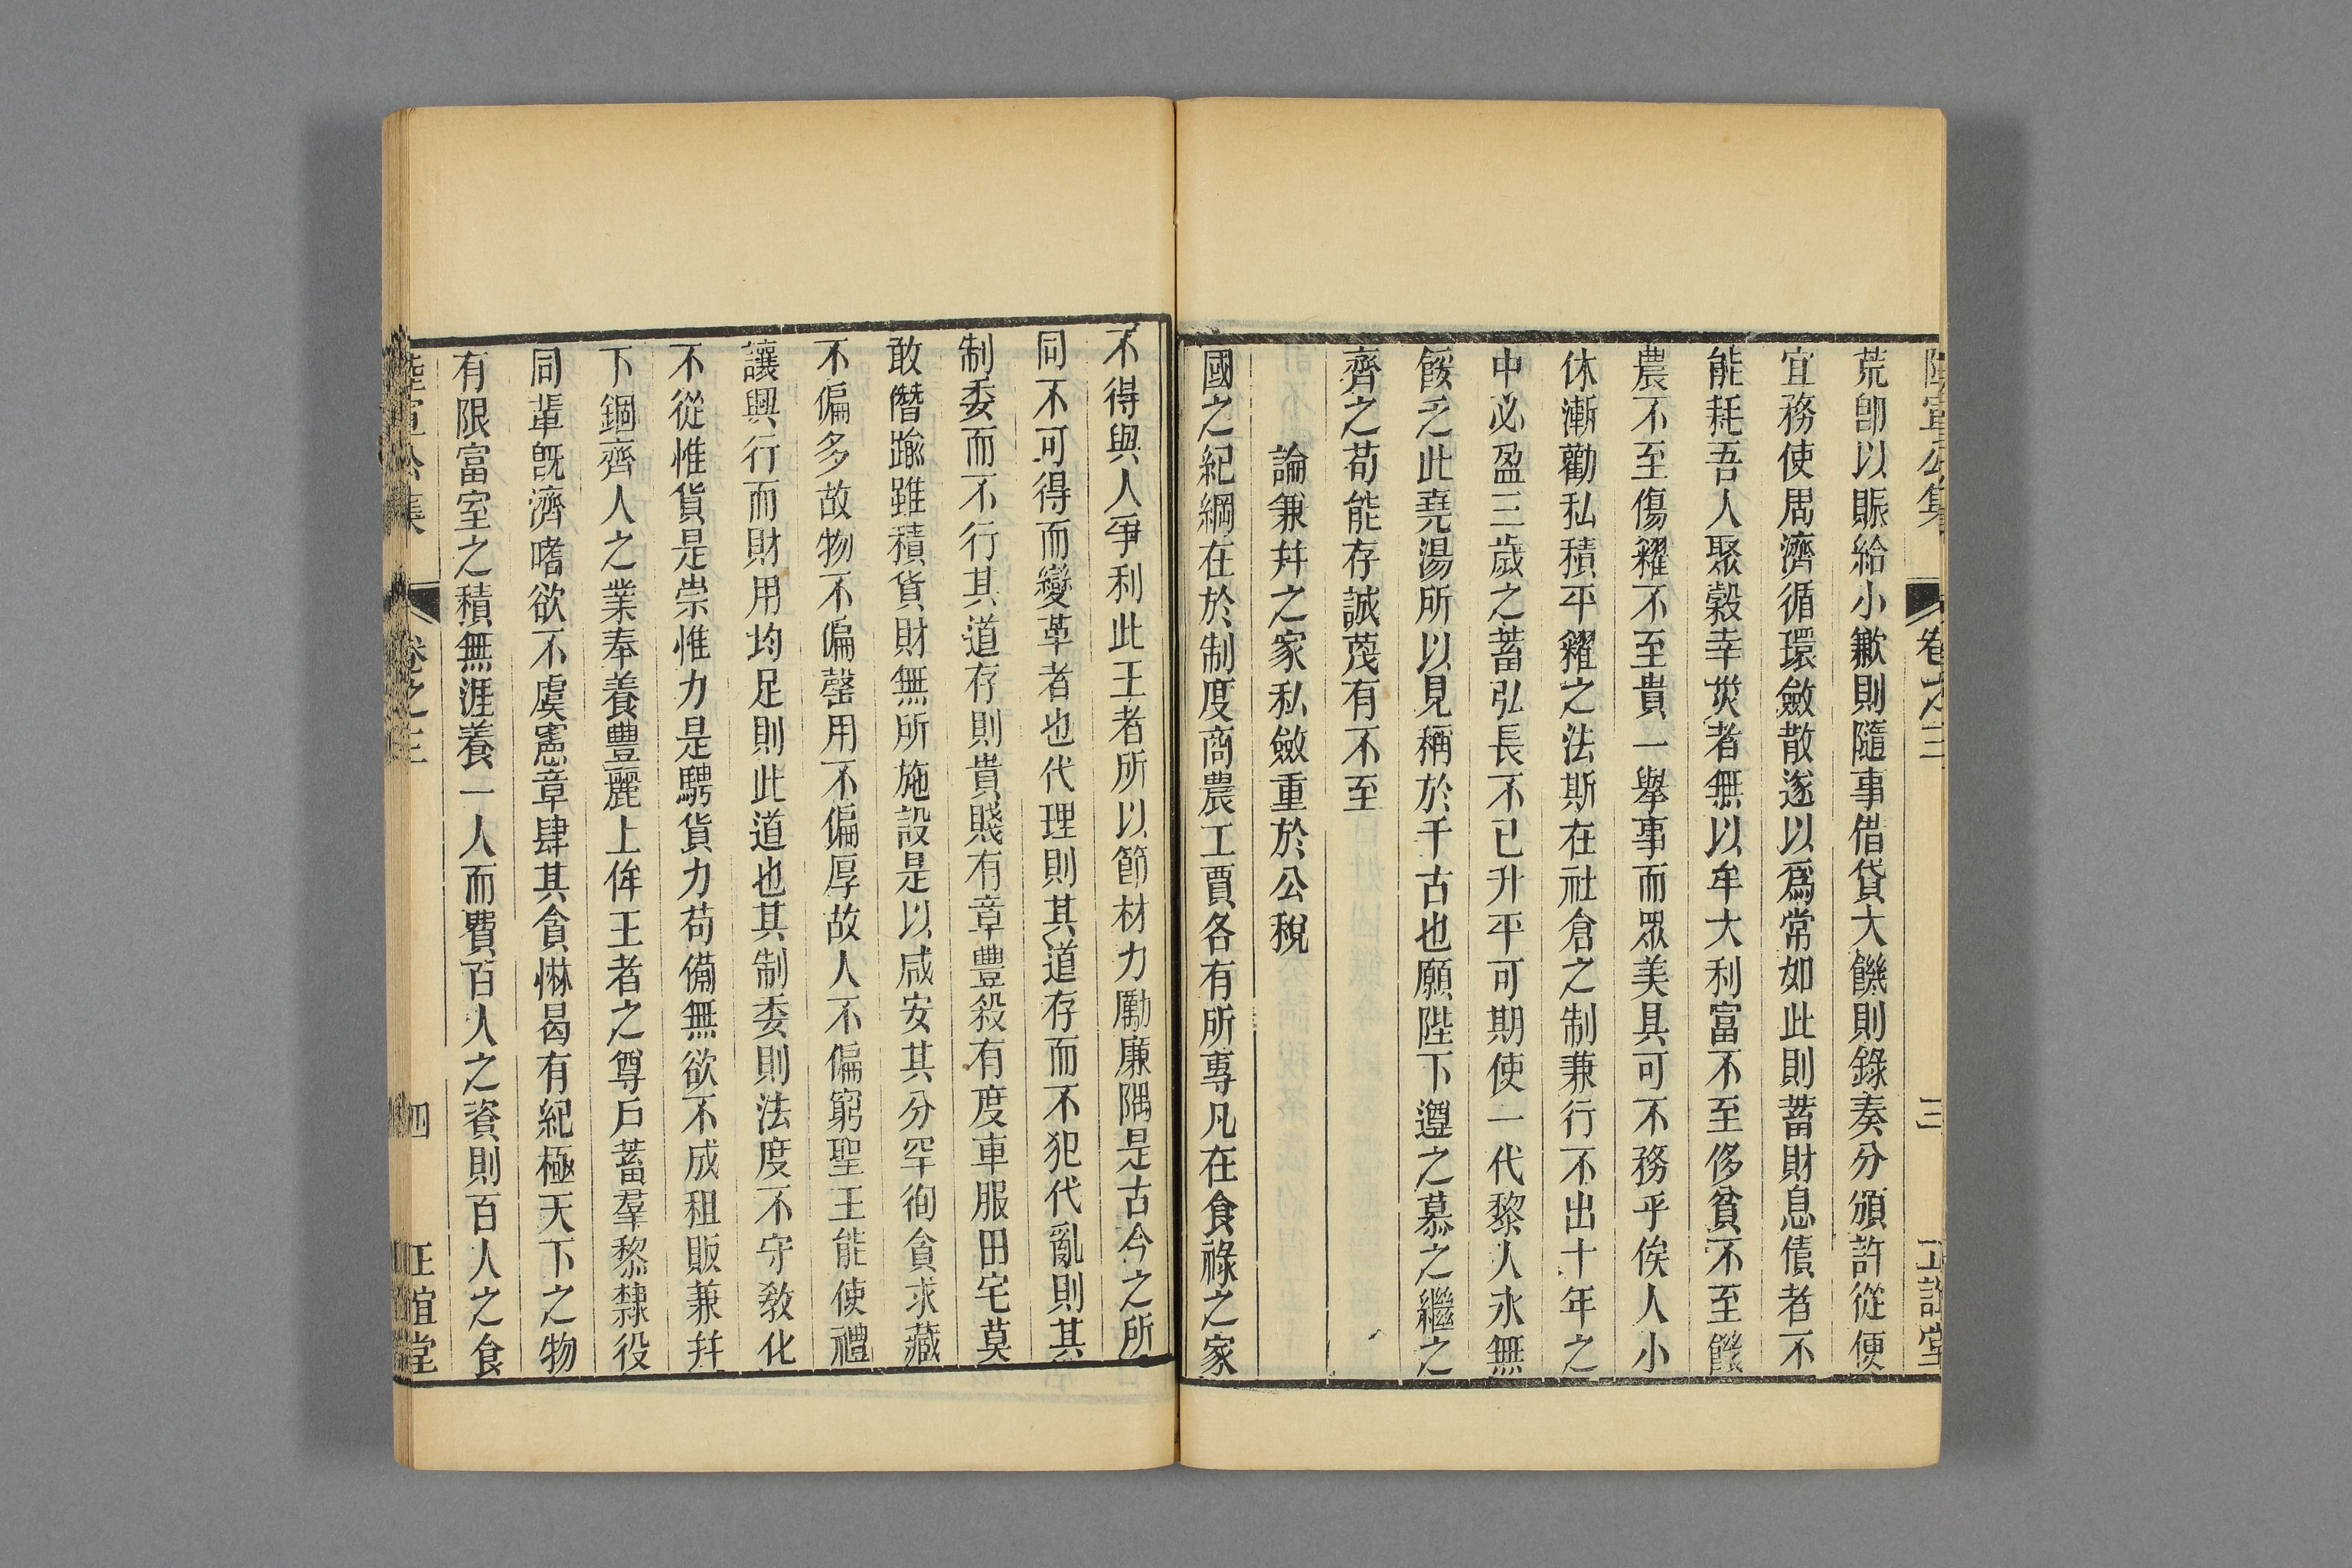 陸宣公集 卷之三 三 正誼堂
荒卽以賑給小歉則隨事借貸大饑則錄奏分頒許從便
宜務使周濟循環斂散遂以爲常如此則蓄財息債者不
能耗吾人聚穀幸災者無以牟大利富不至侈貧不至饑
農不至傷糴不至貴一舉事而眾美具可不務乎俟人小
休漸勸私積平糴之法斯在社倉之制兼行不出十年之
中必盈三歲之蓄弘長不已升平可期使一代黎人永無
餒乏此堯湯所以見稱於千古也願陛下遵之慕之繼之
齊之苟能存誠蔑有不至
論兼幷之家私斂重於公稅
國之紀綱在於制度商農工賈各有所專凡在食祿之家
不得與人爭利此王者所以節材力勵廉隅是古今之所
同不可得而變革者也代理則其道存而不犯代亂則其
制委而不行其道存則貴賤有章豐殺有度車服田宅莫
敢僭踰雖積貨財無所施設是以咸安其分罕徇貪求藏
不偏多故物不偏罄用不偏厚故人不偏窮聖王能使禮
讓興行而財用均足則此道也其制委則法度不守敎化
不從惟貨是崇惟力是騁貨力苟備無欲不成租販兼幷
下錮齊人之業奉養豐麗上侔王者之尊戶蓄羣黎隸役
同輩旣濟嗜欲不虞憲章肆其貪惏曷有紀極天下之物
有限富室之積無涯養一人而費百人之資則百人之食
陸宣公集 卷之三 四 正誼堂